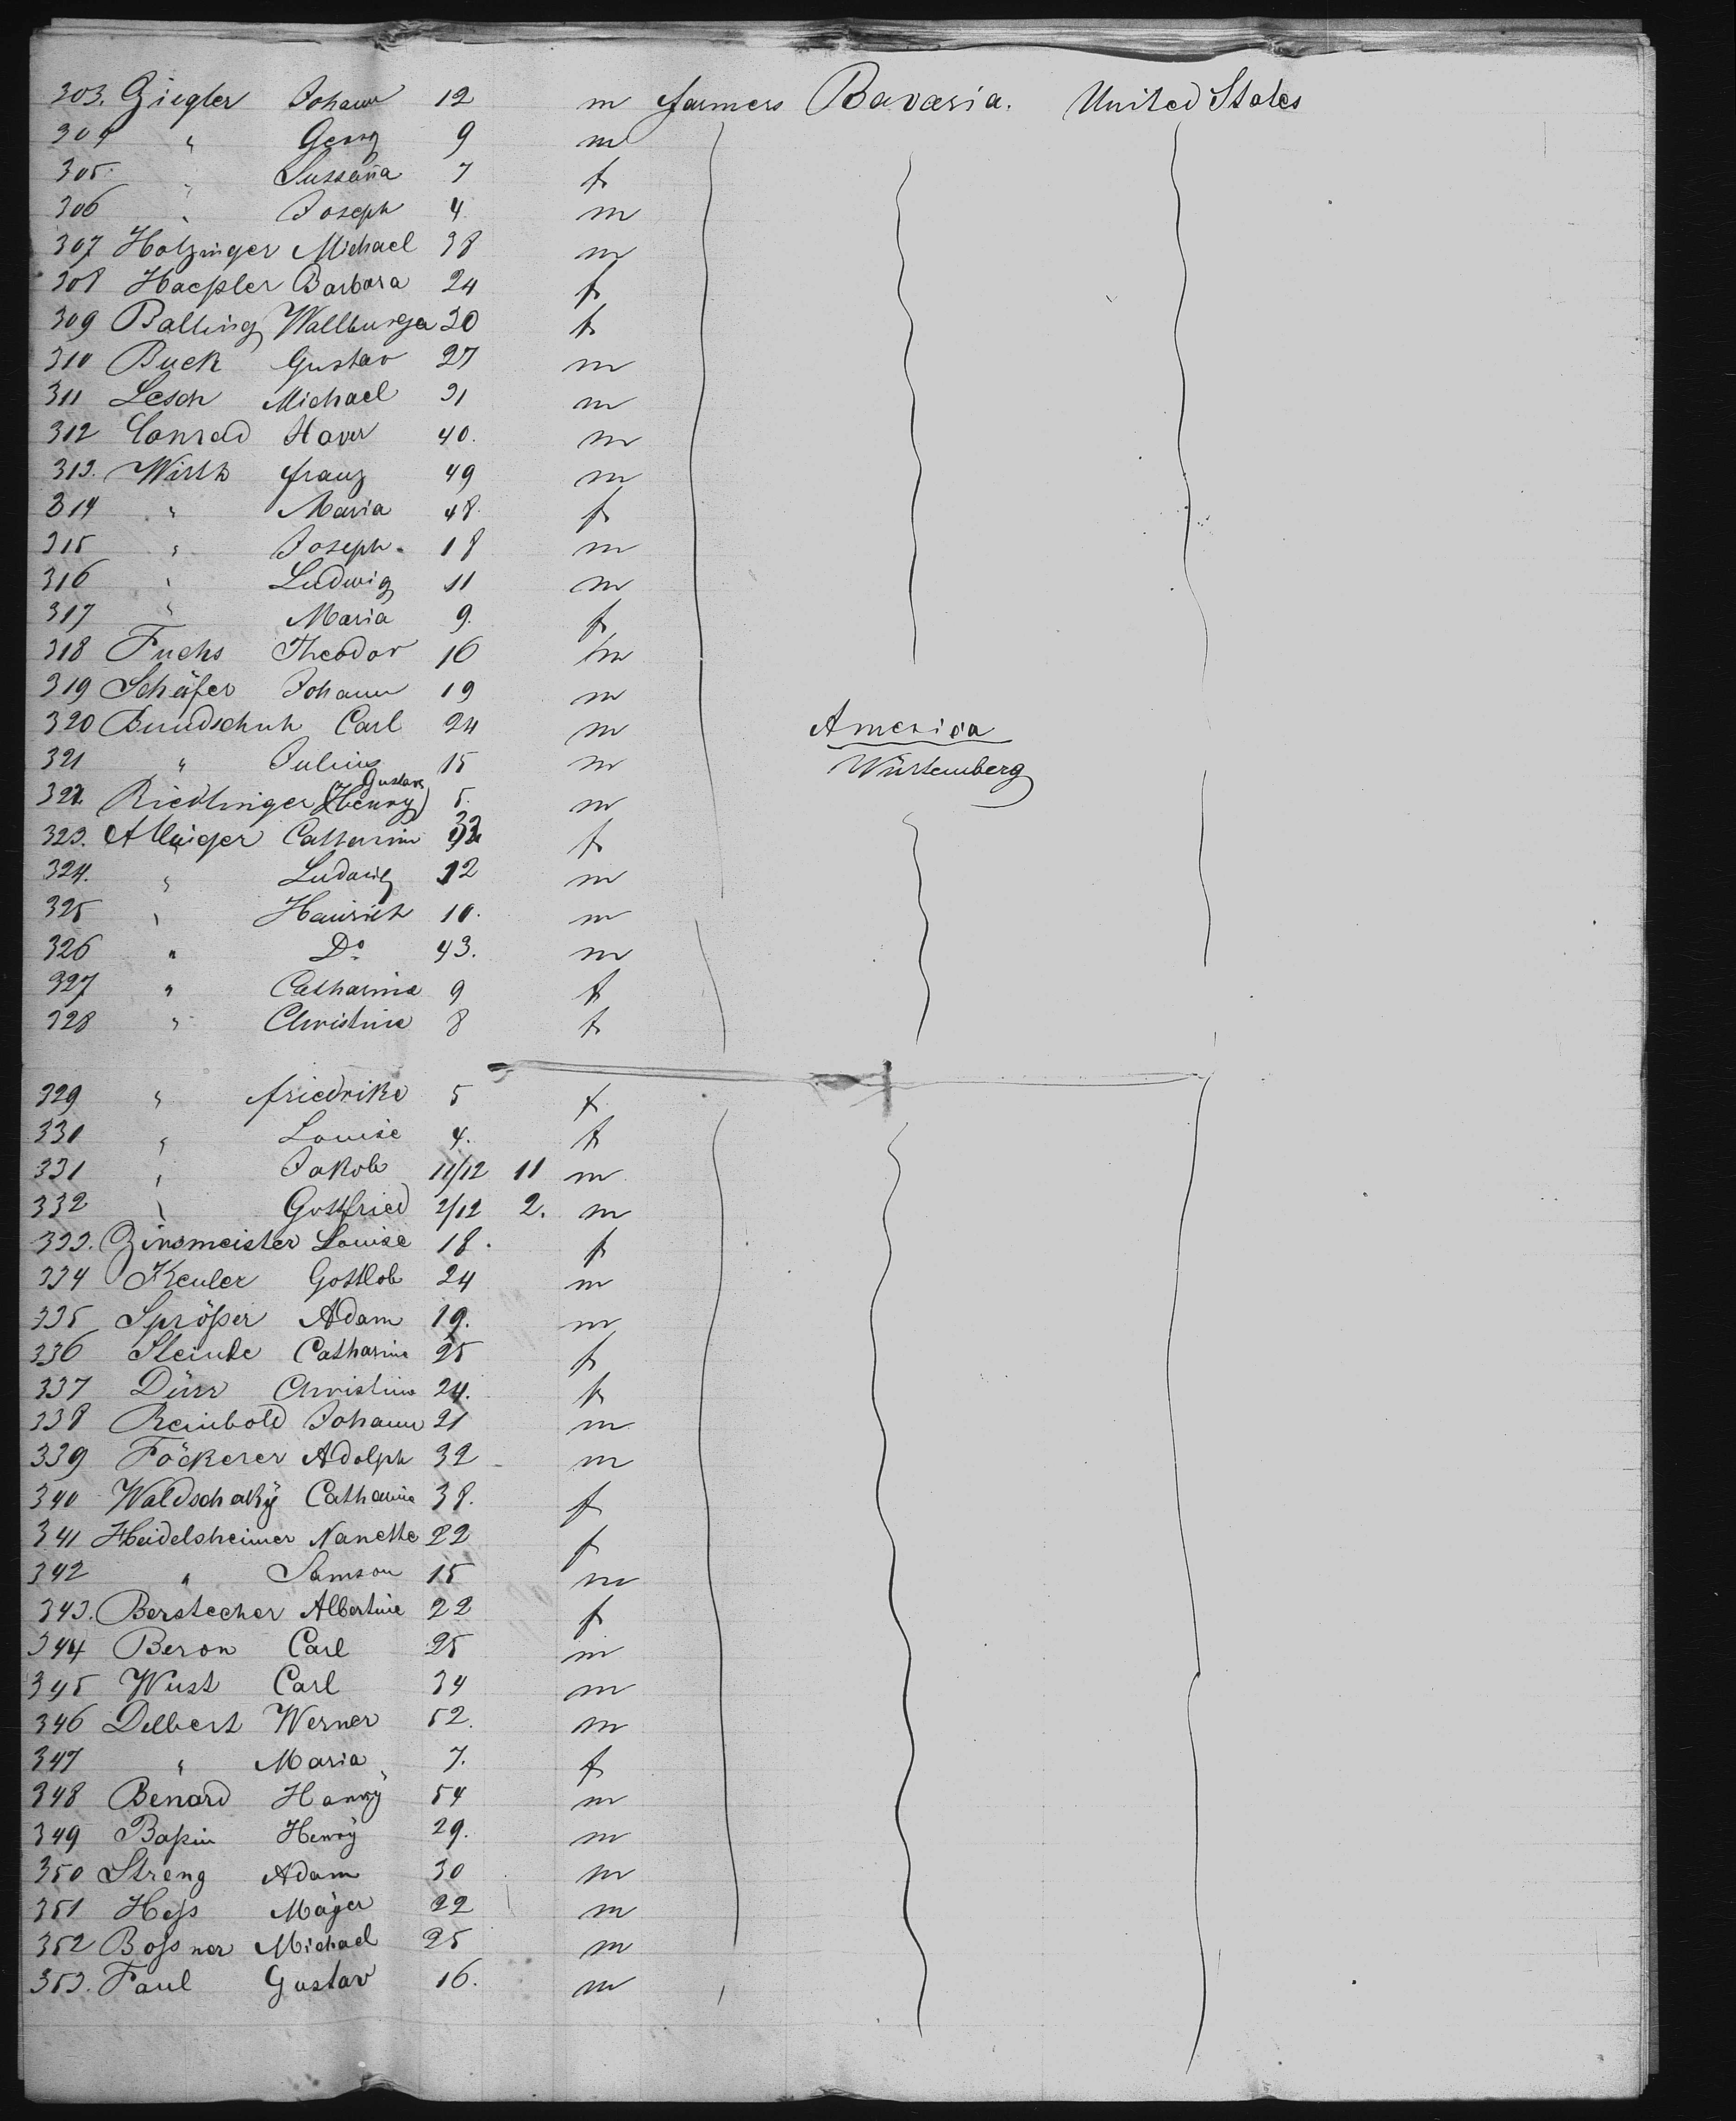 303. Ziegler Johann 12 m farmers Bavaria. United States
304 " Georg 9 m
305. " Sussana 7 f
306 " Joseph 4 m
307 Holzinger Michael 38 m
308 Haeßler Barbara 24 f
309 Balling Wallburga 30 f
310 Buck Gustav 27 m
311 Lesch Michael 31 m
312 Conrad Haver 40. m
313. Wirth franz 49 m
314 " Maria 48. f
315 " Joseph. 18 m
316 " Ludwig 11 m
317 " Maria 9. f
318 Fuchs Theodor 16 m
319 Schäfer Johann 19 m
320 Bundschuh Carl 24 m America
321 " Julius 15 m Würtemberg
322 Riedlinger (Henry) Gustave 5. m
323. Catharine 32 f
324. " Ludwig 12 m
325 " Heinrich 10. m
326 " Do 43. m
327 " Catharina 9 f
328 " Christine 8 f
329 " friedrike 5 f
330 " Louise 4. f
331 " Jakob 11/12 11 m
332 " Gottfried 2/12 2. m
333. Zinsmeister Louise 18. f
334 Keuler Gottlob 24 m
335 Sprößer Adam 19. m
336 Steinle Catharine 25 f
337 Dürr Christine 24. f
338 Reinbold Johann 21 m
339 Föckerer Adolph 32 m
340 Waldschaky Catharine 38. f
341 Heidelsheimer Nanette 22 f
342 " Samson 15 m
343. Berstecher Albertine 22 f
344 Beron Carl 25 m
345 Wust Carl 34 m
346 Delbert Werner 52. m
347 " Maria 7. f
348 Benard Hanry 54 m
349 Baßin Henry 29. m
350 Streng Adam 30 m
351 Heß Mayer 22 m
352 Boßner Michael 25 m
353. Faul Gustav 16. m